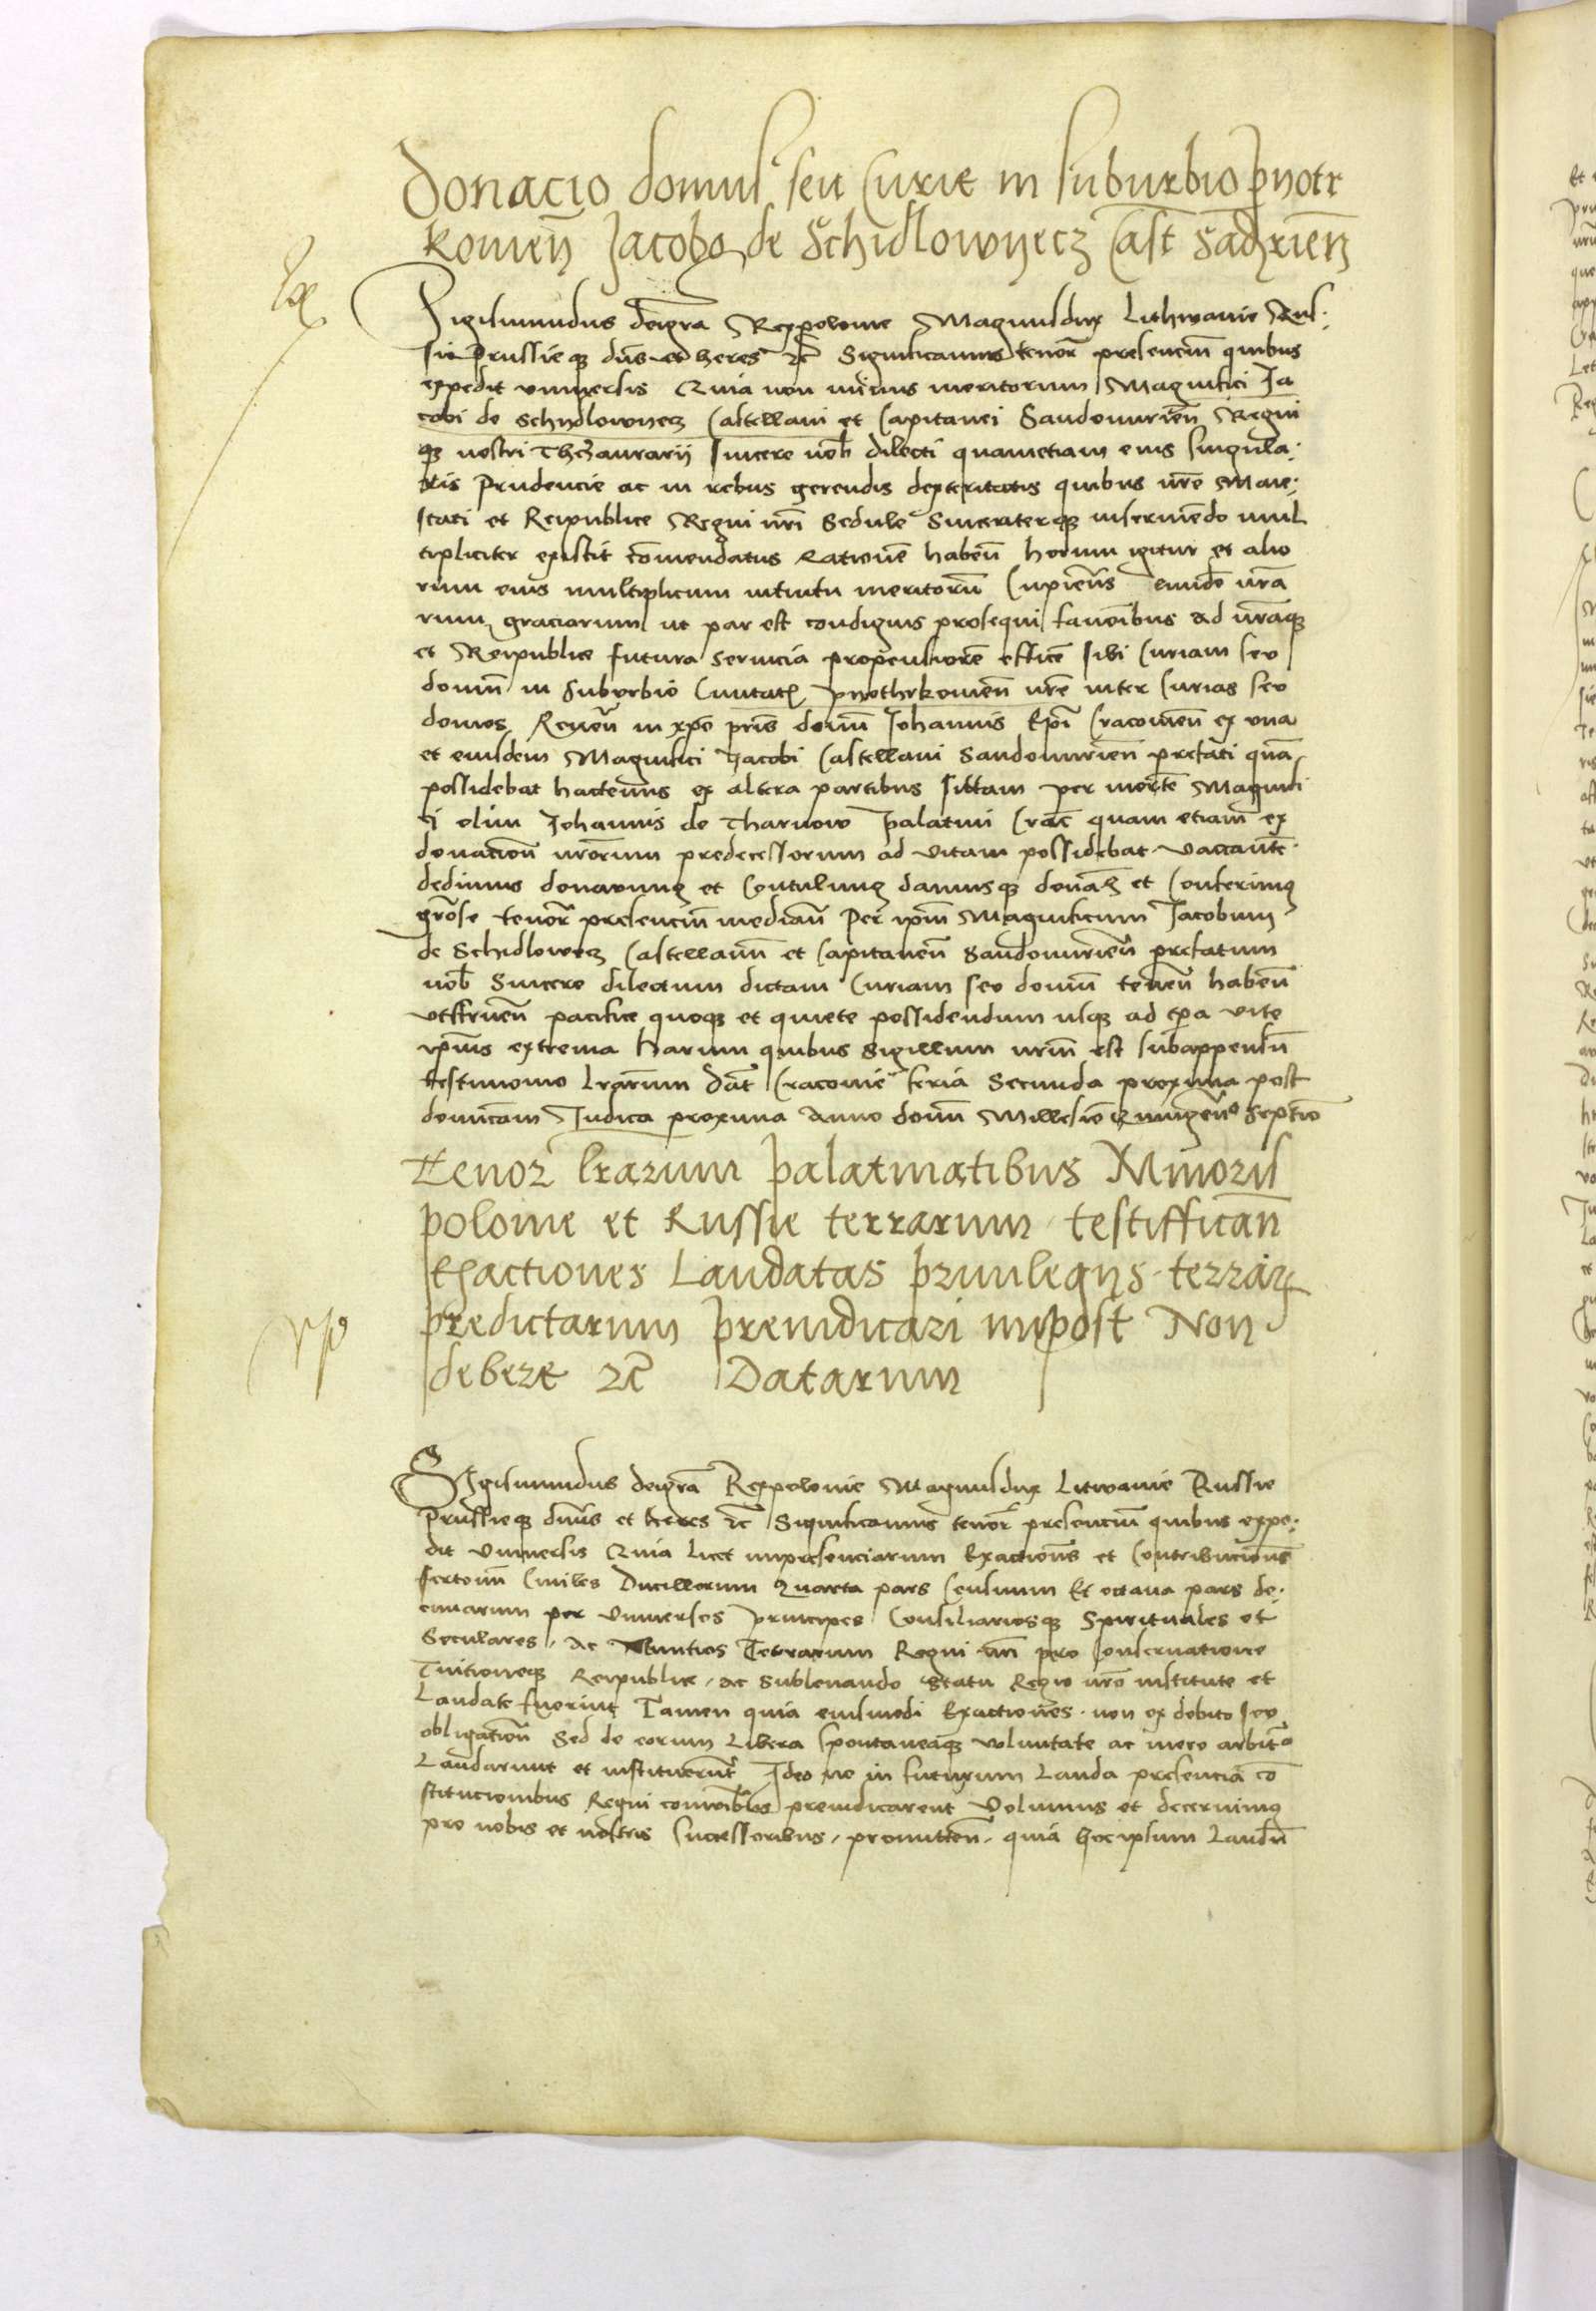 Donacio domus seu Curie in suburbio pyotr
komieñ Jacobo de Schidlowyecz Cast Sadz̃rieñ
Sigismundus deigr̃a Rex polonie Magnusdux Lithwanie Rus
sie Prussieq₃ dñs et heres ⁊c̃ Significamus tenor̃ presenciũ quibus
expedit vniuersis Quia non minus meritorum Magnifici Ja
cobi de Schydlowyecz Castellani et Capitanei Sandomirieñ Regni
q₃ nostri Thezaurarii sincere nob̃ dilecti quametiam eius singula
ris Prudencie ac in rebus gerendis dexteritatis quibus nr̃e Maie
stati et Reipublice Regni nr̃i sedule sinceriterq₃ inseruiendo mul
tipliciter existit com̃endatus Rationẽ habeñ horum igitur et alio
rum eius multiplicum intuitu meritorũ Cupien̄s eundẽ nr̃a
rum graciarum ut par est condignis prosequi fauoribus ad nr̃aq₃
et Reipublice futura seruicia propensiorẽ efficẽ sibi Curiam seo
domũ in suburbio Ciuitatꝭ pyothrkomieñ nr̃e inter Curias seo
domos Reueñ in xp̃o pris̃ domini Johannis Ep̃i Cracouieñ ex vna
et eiusdem Magnifici Jacobi Castellani Sandomirieñ prefati quã
possidebat hactenus ex altera partibus sittam per mortẽ Magnifi
ci olim Johannis de Tharnow palatini Crac̃ quam etiam ex
donacioñ nr̃orum predecessorum ad vitam possidebat vaccantẽ
dedimus donauimus et Contulimus damusq₃ donam̃ et Conferimus
gr̃ose tenor̃ presenciũ mediañ Per ip̃m Magnificum Jacobum
de Schidlowecz Castellanũ et Capitaneũ Sandomirieñ prefatum
nob̃ Sincere dilectum dictam Curiam seo domũ teneñ habeñ
vtifrueñ pacifice quoq₃ et quiete possidendum usq₃ ad tp̃a vite
ip̃ius extrema Harum quibus Sigillum nr̃m est subappensũ
testimonio lr̃arum Dat̃ Cracouie feria Secunda proxima post
dominicam Judica proxima Anno domĩ Millesiõ Quingeñº Septiõ
Tenor lr̃arum palatinatibus Minoris
polonie et Russie terrarum testifficañ
Exactiones Laudatas priuilegijs terrarꝝ
predictarum preiudicari inpost Non
debere ⁊c̃ Datarum
Sigismundus deigr̃a Rexpolonie Magnusdux Litwanie Russie
Prussieq₃ dñus et heres ⁊c̃ Significamus tenor̃ presenciũ quibus expe
dit Vniuersis Quia licet inpresenciarum Exactiones̃ et Contribucioñes
fertonũ Ciuiles Ducillorum Quarta pars Censuum Et octaua pars de
cimarum per Vniuersos principes Consiliariosq₃ Spirituales et
Seculares Ac Nuntios Terrarum Regni nr̃i pro Conseruatione
Tuitioneq₃ Reipublice ac subleuando Statu Regio nr̃o institute et
Laudate fuerint Tamen quia eiusmodi Exactiones non ex debito seo
obligacioñ Sed de eorum Libera Spontaneaq₃ voluntate ac mero arbitº
Laudarunt et instituerunt Ideo ne in futurum Lauda presenciã co
stitucionibus Regni comũibus preiudicarent Volumus et decernimus
pro nobis et nostris Successoribus promitteñ quia hoc ipsum Laudũ